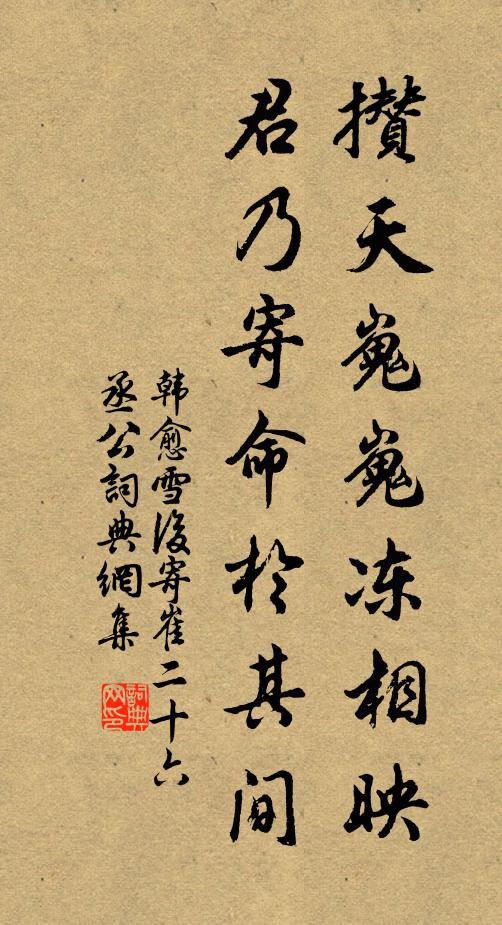 攢天嵬嵬冻相映
君乃寄命於其间
韩愈雪後寄崔二十六
丞公詞典網集
詞典
网印